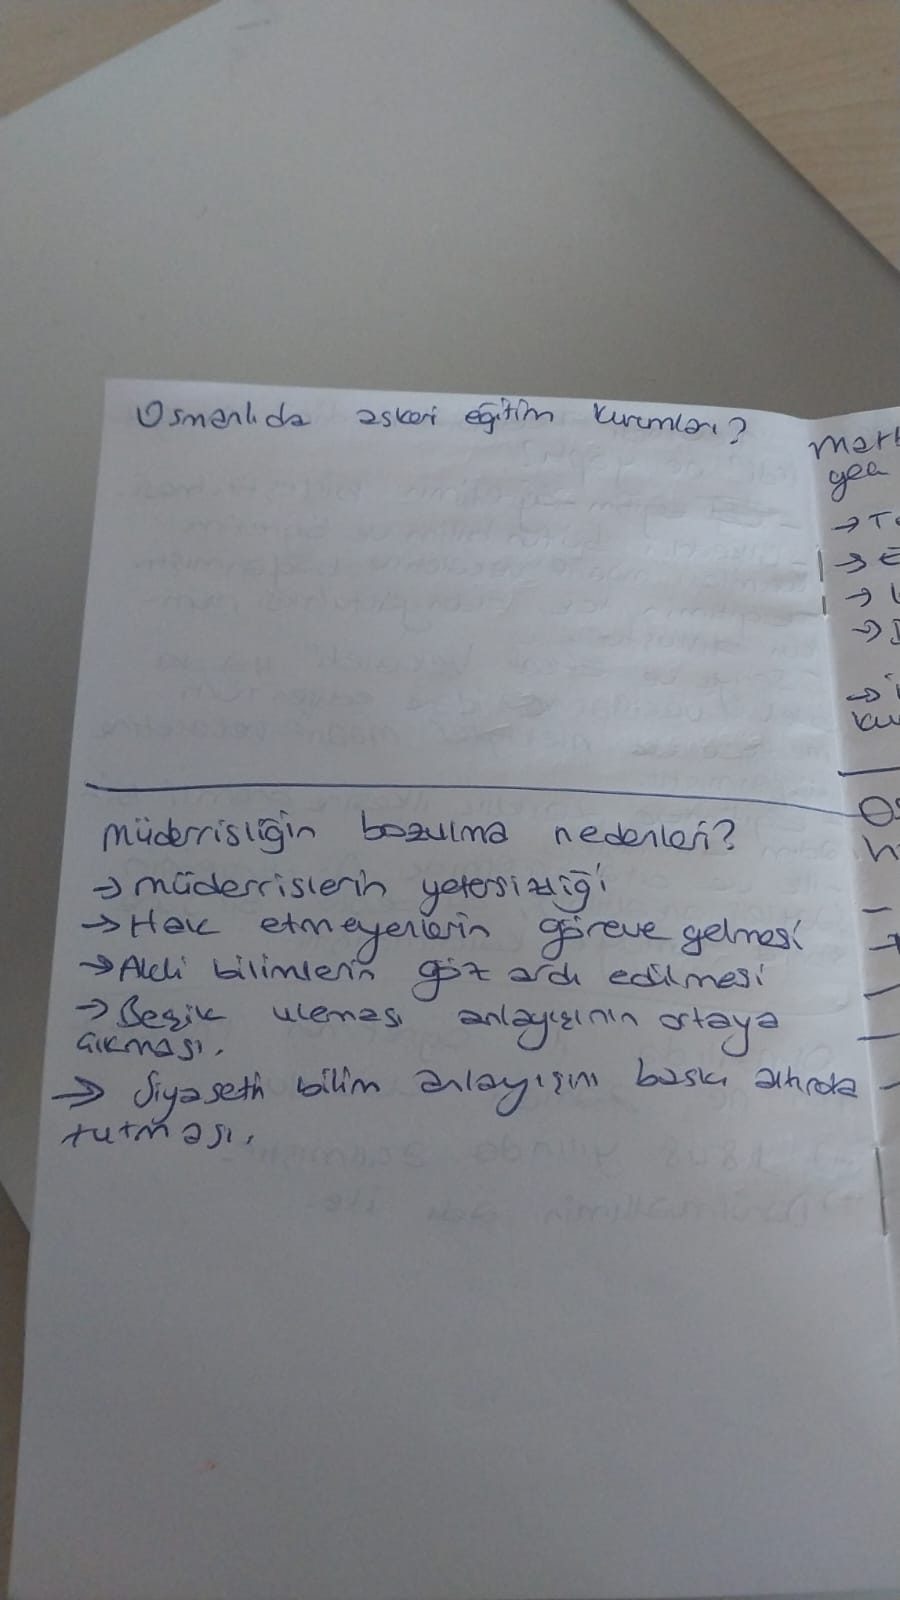 Osmanlıda askeri eğitim kurumları?
Müderrisliğin bozulma nedenleri?
→ müderrislerin yetersizliği
→ Hak etmeyenlerin göreve gelmesi
→ Akli bilimlerin göz ardı edilmesi
→ Beşik uleması anlayışının ortaya
çıkması.
→ Siyasetin bilim anlayışını baskı altında
tutması.